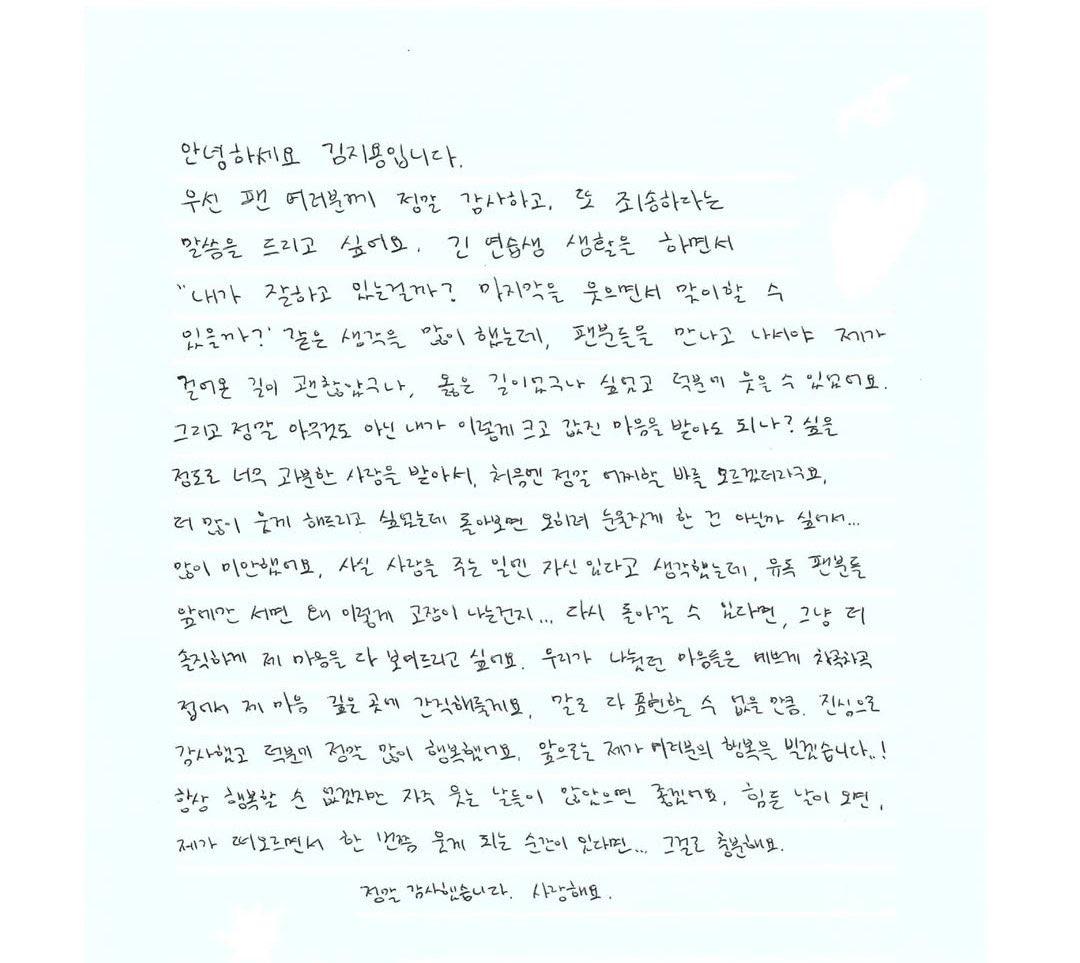 안녕하세요 김지용입니다.
우선 팬 여러분께 정말 감사하고, 또 죄송하다는
말씀을 드리고 싶어요. 긴 연습생 생활을 하면서
"내가 잘하고 있는걸까? 마지막을 웃으면서 맞이할 수
있을까?' 같은 생각을 많이 했는데, 팬분들을 만나고 나서야 제가
걸어온 길이 괜찮았구나, 옳은 길이었구나 싶었고 덕분에 웃을 수 있었어요.
그리고 정말 아무것도 아닌 내가 이렇게 크고 값진 마음을 받아도 되나? 싶을
정도로 너무 과분한 사랑을 받아서, 처음엔 정말 어찌할 바를 모르겠더라구요.
더 많이 웃게 해드리고 싶었는데 돌아보면 오히려 눈물짓게 한 건 아닐까 싶어서...
많이 미안했어요. 사실 사랑을 주는 일엔 자신 있다고 생각했는데, 유독 팬분들
앞에만 서면 왜 이렇게 고장이 나는건지... 다시 돌아갈 수 있다면, 그냥 더
솔직하게 제 마음을 다 보여드리고 싶어요. 우리가 나눴던 마음들은 예쁘게 차곡차곡
접어서 제 마음 깊은 곳에 간직해둘게요. 말로 다 표현할 수 없을 만큼. 진심으로
감사했고 덕분에 정말 많이 행복했어요. 앞으로는 제가 여러분의 행복을 빌겠습니다..!
항상 행복할 순 없겠지만 자주 웃는 날들이 많았으면 좋겠어요. 힘든 날이 오면,
제가 떠오르면서 한 번쯤 웃게 되는 순간이 있다면... 그걸로 충분해요.
정말 감사했습니다. 사랑해요.